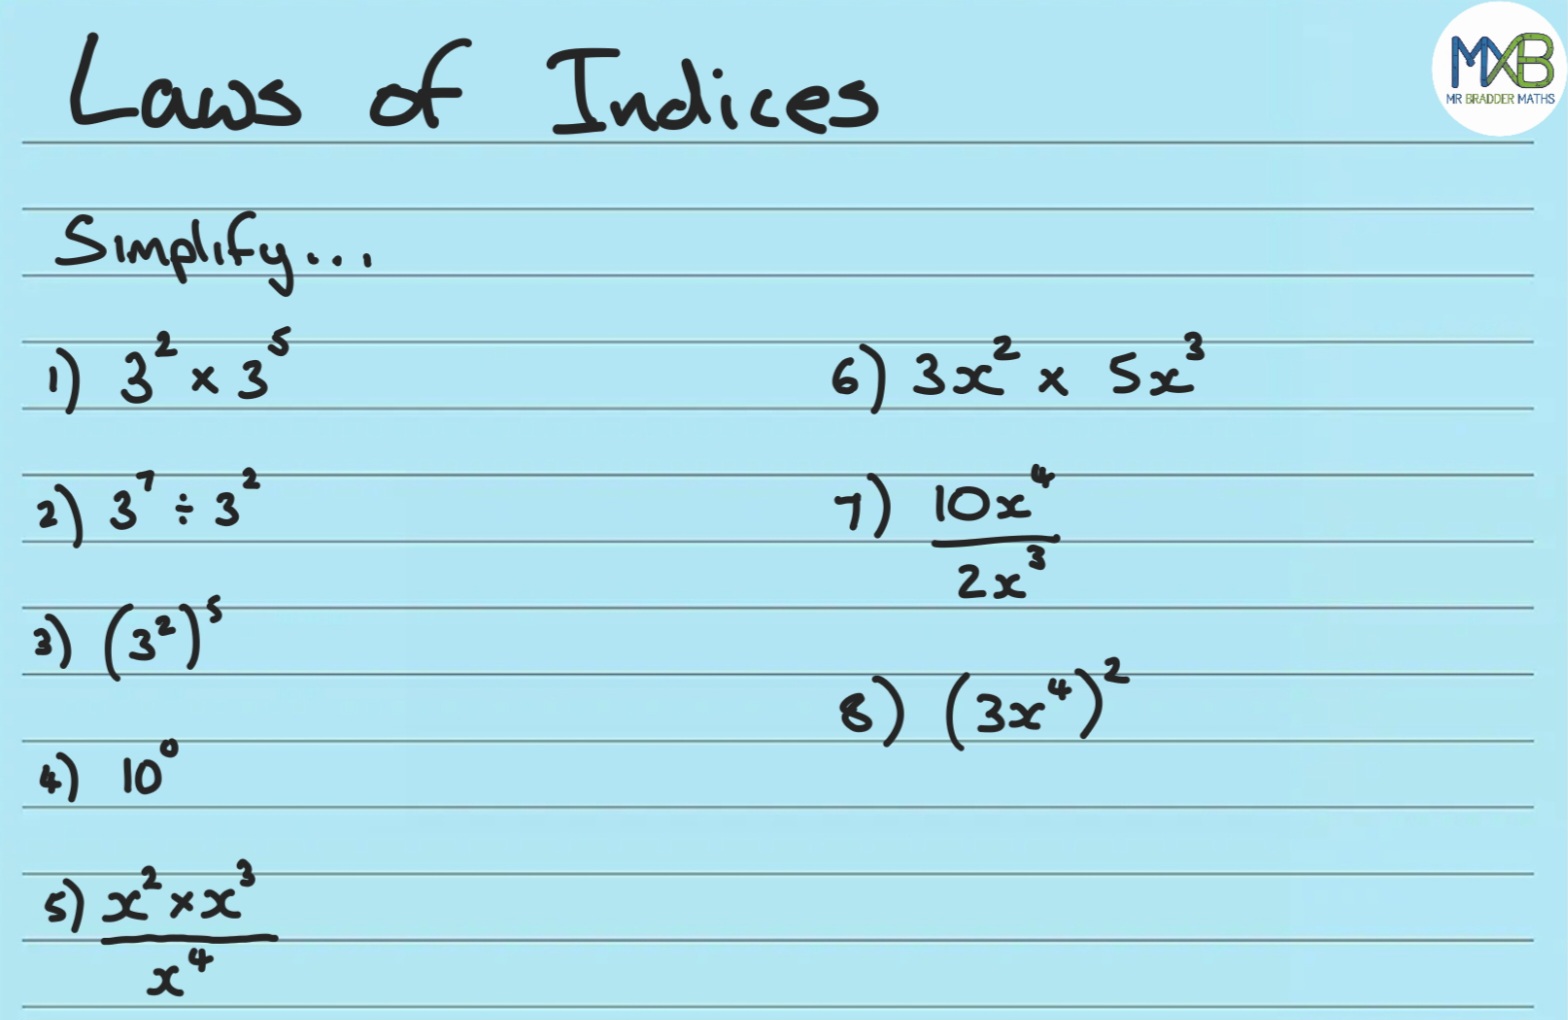 Laws of Indices
MXB
MR BRADDER MATHS
Simplify...
1) 3² × 3⁵
2) 3⁷ ÷ 3²
3) (3²)⁵
4) 10⁰
5) x² × x³
x⁴
6) 3x² × 5x³
7) 10x⁴
2x³
8) (3x⁴)²